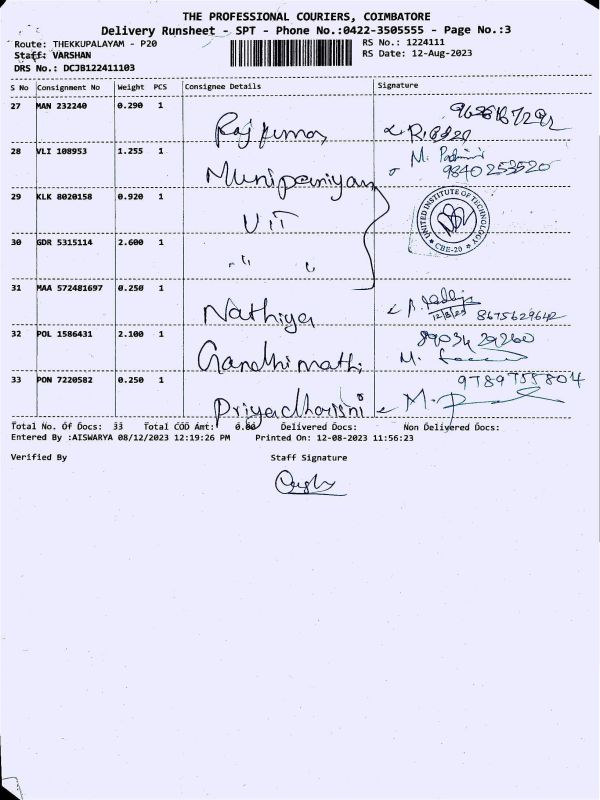 THE PROFESSIONAL COURIERS, COIMBATORE
Delivery Runsheet - SPT - Phone No.:0422-3505555 - Page No.:3
Route: THEKKUPALAYAM - P20
RS No.: 1224111
Staff: VARSHAN
RS Date: 12-Aug-2023
DRS No.: DCJB122411103
S No Consignment No Weight PCS Consignee Details Signature
27 MAN 232240 0.290 1 Raj kumar
28 VLI 108953 1.255 1 Munipaniyan M. Padmini 9840253520
29 KLK 8020158 0.920 1 UIT
UNITED INSTITUTE OF TECHNOLOGY
CBE-20
30 GDR 5315114 2.600 1 " "
31 MAA 572481697 0.250 1 Nathiya 12/8/23 8675629642
32 POL 1586431 2.100 1 Gandhimathi 89034 29260 M.
33 PON 7220582 0.250 1 Priyadharisni 9789755804 M.
Total No. Of Docs: 33 Total COD Amt: 0.00 Delivered Docs: Non Delivered Docs:
Entered By :AISWARYA 08/12/2023 12:19:26 PM Printed On: 12-08-2023 11:56:23
Verified By Staff Signature